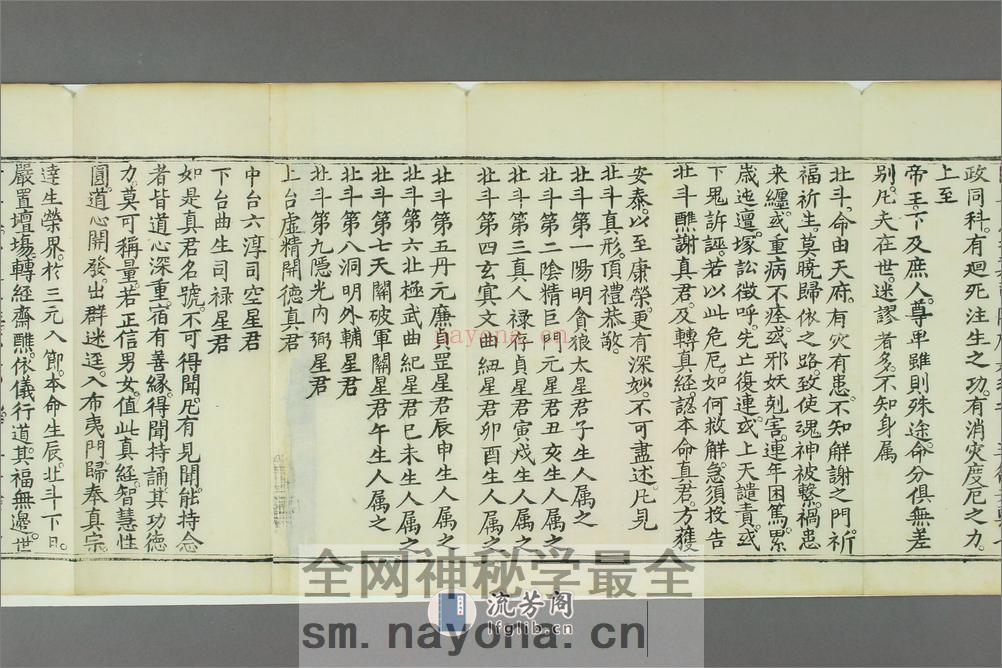 政同科。有廻死注生之功。有消灾度厄之力。
上至
帝王。下及庶人。尊卑雖則殊途。命分俱無差
別。凡夫在世。迷謬者多。不知身属
北斗。命由天府。有灾有患。不知解謝之門。祈
福祈生。莫暁歸依之路。致使魂神被繫。禍患
来纏。或重病不痊。或邪妖剋害。連年困篤。累
歳迍邅。塚訟徴呼。先亡復連。或上天譴責。或
下鬼訴誣。若以此危厄。如何救解。急須投告
北斗。醮謝真君。及轉真經。認本命真君。方獲
安泰。以至康榮。更有深妙。不可盡述。凡見
北斗真形。頂禮恭敬。
北斗第一陽明貪狼太星君子生人属之
北斗第二陰精巨門元星君丑亥生人属之
北斗第三真人禄存貞星君寅戌生人属之
北斗第四玄冥文曲紐星君卯酉生人属之
北斗第五丹元廉貞罡星君辰申生人属之
北斗第六北極武曲紀星君巳未生人属之
北斗第七天關破軍關星君午生人属之
北斗第八洞明外輔星君
北斗第九隠光内弼星君
上台虚精開德真君
中台六淳司空星君
下台曲生司禄星君
如是真君名號。不可得聞。凡有見聞。能持念
者。皆道心深重。宿有善縁。得聞持誦。其功德
力。莫可稱量。若正信男女。值此真經。智慧性
圓。道心開發。出群迷逕。入希夷門。歸奉真宗。
達生榮界。於三元八節。本命生辰。北斗下日。
嚴置壇塲。轉經齋醮。依儀行道。其福無邊。世
nayona.cn
全网神秘学最全
流芳阁
lfglib.cn
sm.nayona.cn